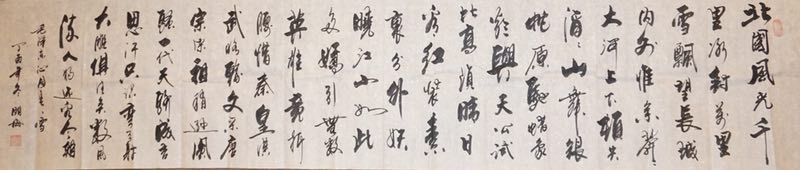 北國風光千
里冰封萬里
雪飄望長城
內外惟余莽〻
大河上下頓失
滔〻山舞銀
蛇原馳蠟象
欲與天公試
比高須晴日
看紅裝素
裹分外妖
嬈江山如此
多嬌引無數
英雄競折
腰惜秦皇漢
武略輸文采唐
宗宋祖稍遜風
騷一代天驕成吉
思汗只識彎弓射
大雕俱往矣數風
流人物還看今朝
毛澤東沁園春雪
丁酉年冬